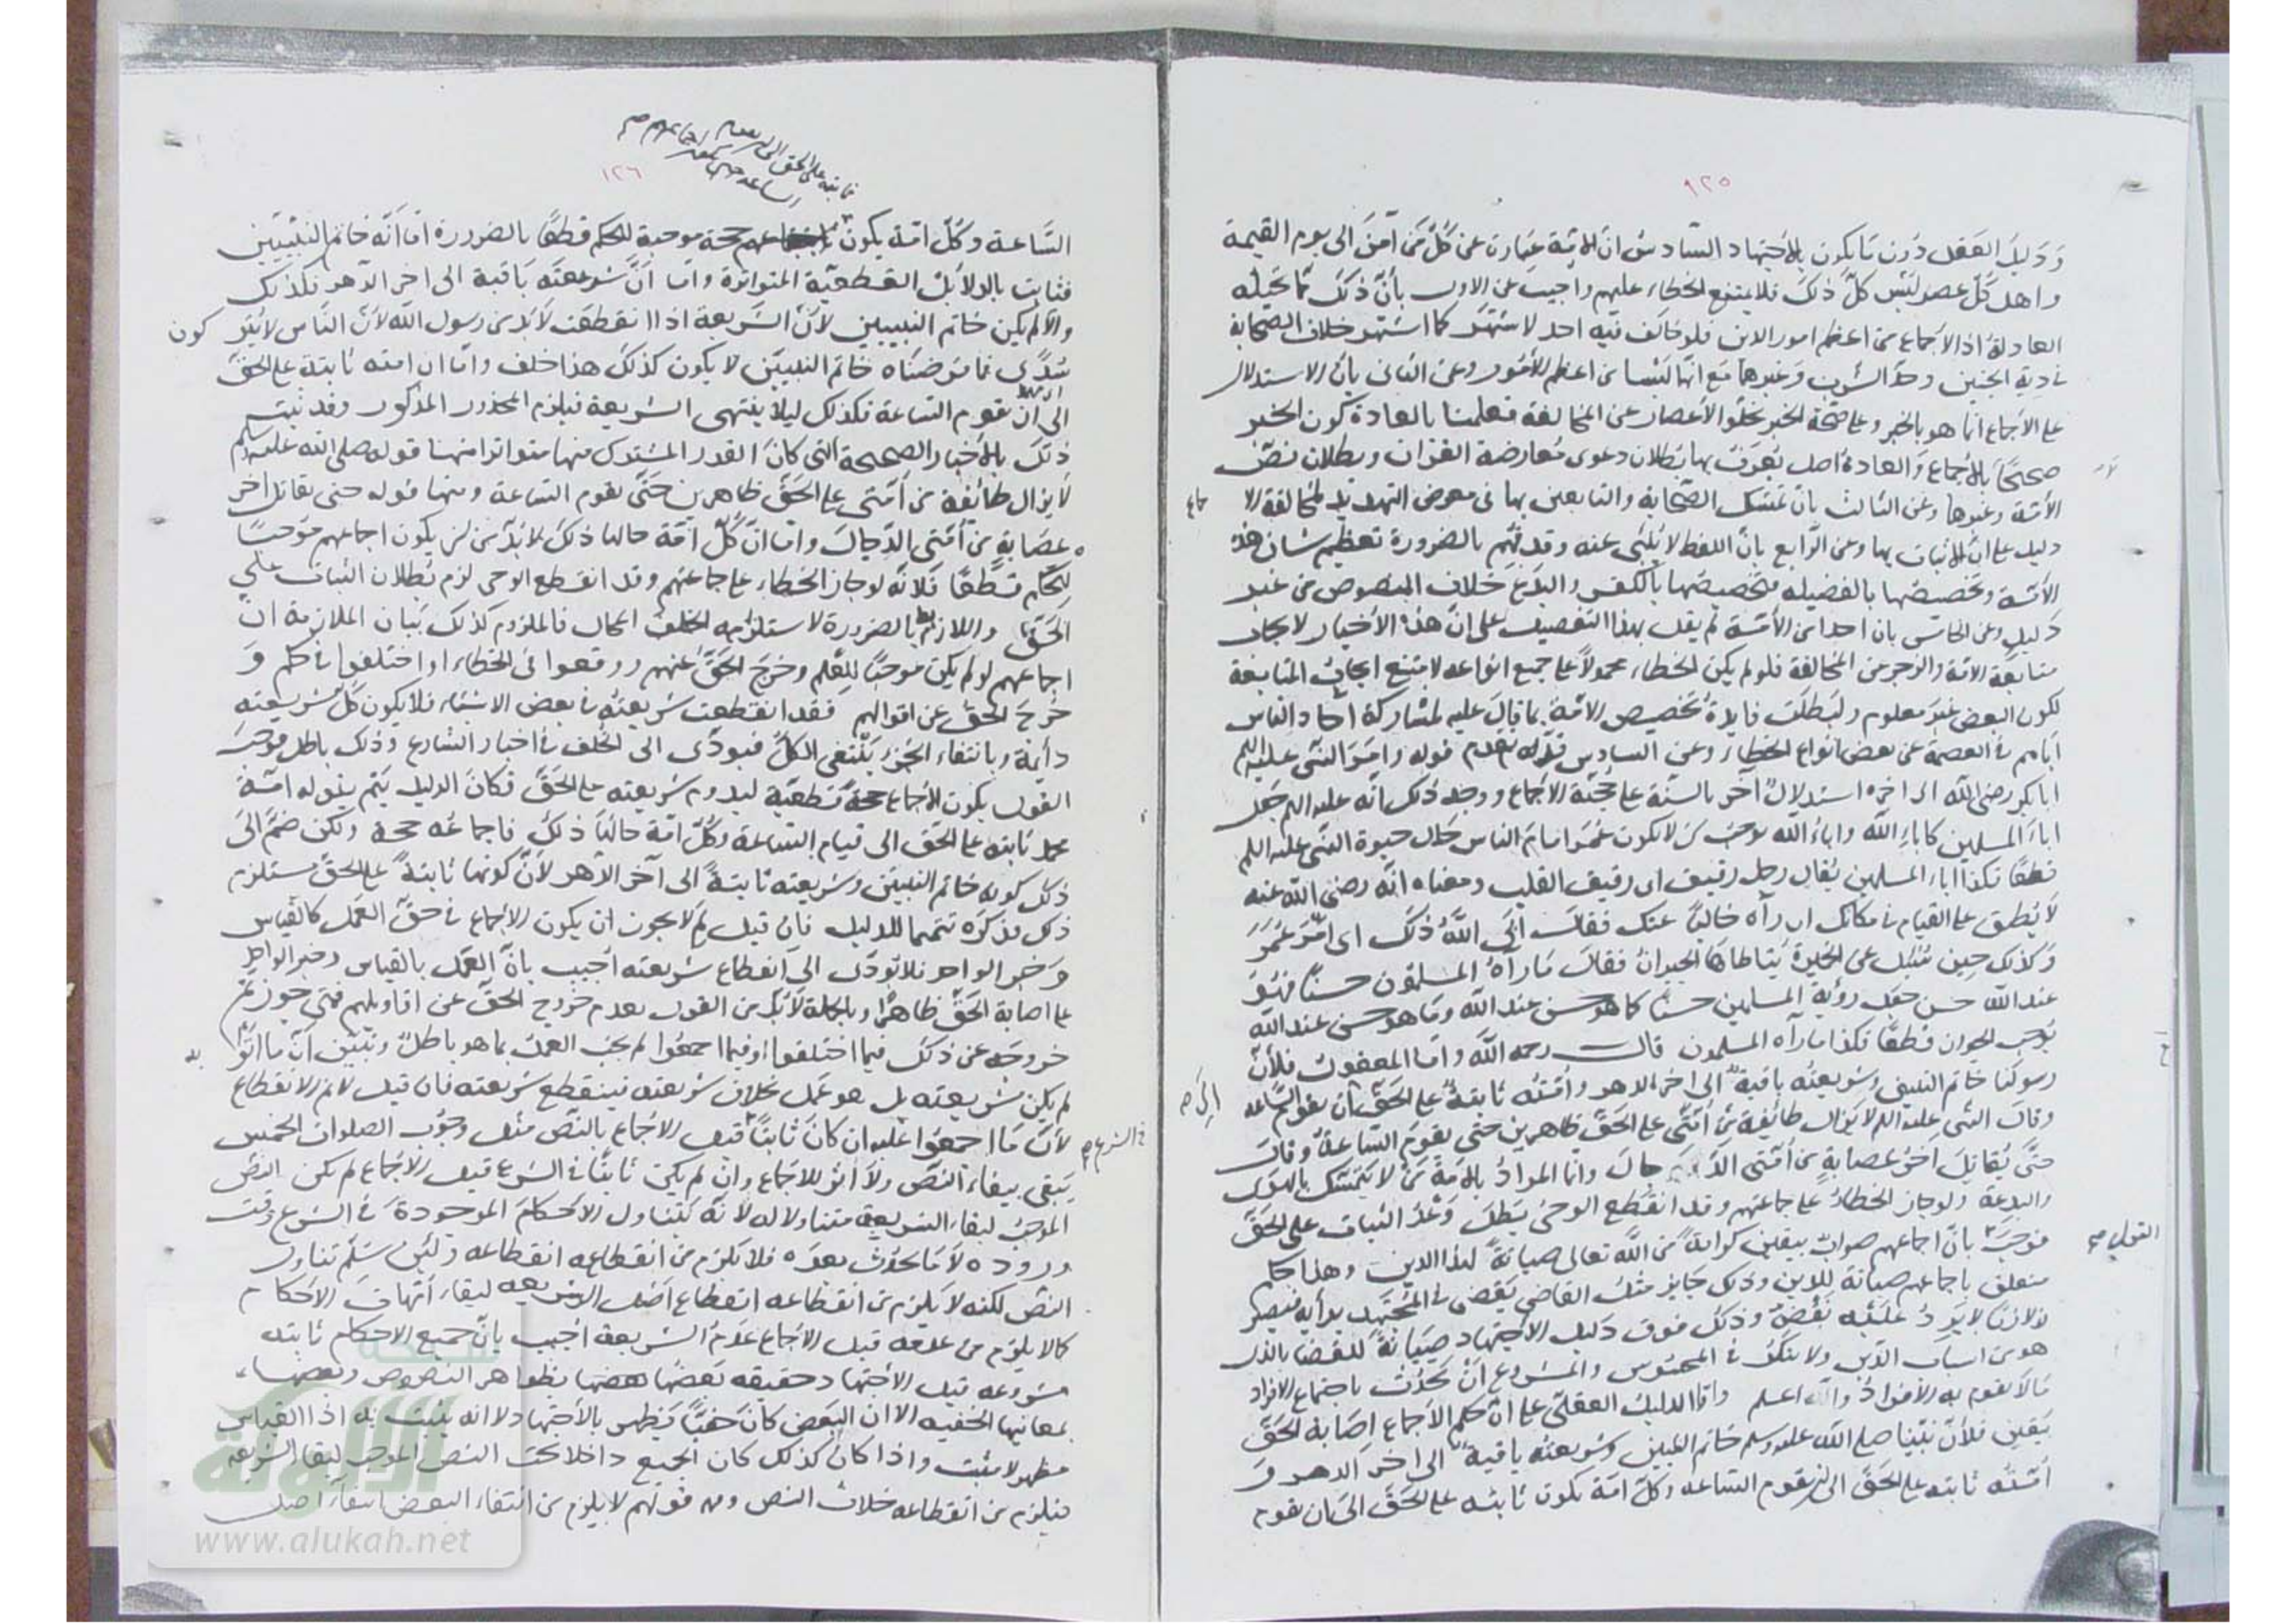 ١٢٥
ودليل العقل دون ما يكون بالاجتهاد السادس ان الامة عبارة عن كل من آمن الى يوم القيمة
واهل كل عصر ليس كل ذلك فلا يمتنع الخطاء عليهم واجيب عن الاول بأن ذلك مما تحيله
العادة اذ الاجماع من اعظم امور الدين فلو خالف فيه احد لاشتهر كما اشتهر خلاف الصحابة
في دية الجنين وحد الشرب وغيرهما مع انها ليسا من اعظم الأمور وعن الثاني بان الاستدلال
على الاجماع انما هو بالخبر وعلى صحة الخبر بخلو الأعصار عن المخالفة فعلمنا بالعادة كون الخبر
صحيحا بالاجماع والعادة اصل يعرف بها بطلان دعوى معارضة القران وبطلان نص
الأئمة وغيرها وعن الثالث بان تمسك الصحابة والتابعين بها في معرض التهديد لمخالفة الا جماع
دليل على ان الاثبات بها وعن الرابع بان اللفظ لا ينبئ عنه وقد فهم بالضرورة تعظيم شان هذه
الأمة وتخصيصها بالفضيلة وتخصيصها بالكفر والبدع خلاف المنصوص من غير
دليل وعن الخامس بان احدا من الأمة لم يقل بهذا التفصيل على ان هذه الأخبار لايجاب
متابعة الامة والزجر من المخالفة فلو لم يكن الخطاء محمولا على جميع انواعه لامتنع ايجاب المتابعة
لكون البعض غير معلوم ولبطلت فايدة تخصيص الامة بما قيل عليه لمشاركة آحاد الناس
اياهم في العصمة عن بعض انواع الخطاء وعن السادس قوله وامر النبي عليه السلم
ابا بكر رضي الله الى اخره استدلال آخر بالسنة على حجية الاجماع ووجه ذلك انه عليه السلم جعل
اباء المسلمين كاباء الله واباء الله يوجب ان لا يكون عمر امام الناس حال حيوة النبي عليه السلم
قطعا فكذا اباء المسلمين يقال رجل رقيق اى رقيق القلب ومعناه انه رضى الله عنه
لا يطيق على القيام في مكانك ان رآه خاليا عنك فقال ابى الله ذلك اى امر عمر
وكذلك حين سئل عن الخميرة يتعاطاها الجيران فقال ما رآه المسلمون حسنا فهو
عند الله حسن جعل رؤية المسلمين حسنا كما هو حسن عند الله وما هو حسن عند الله
يوجب الجواز قطعا فكذا ما رآه المسلمون قال رحمه الله واما المعقول فلأن
رسولنا خاتم النبيين وشريعته باقية الى اخر الدهر وأمته ثابتة على الحق الى ان يقوم الساعة
وقال النبي عليه السلم لا يزال طائفة من أمتى على الحق ظاهرين حتى يقوم الساعة وقال
حتى يقاتل آخر عصابة من أمتى الدجال وانما المراد بالامة من لا يتمسك بالهوى
والبدعة ولو جاز الخطاء على جماعتهم وقد انقطع الوحى بطل وعد الثبات على الحق
فوجب القول بان اجماعهم صواب بيقين كرامة من الله تعالى صيانة لهذا الدين وهذا حكم
متعلق باجماعهم صيانة للدين وذلك جايز مثل القاضى يقضى في المجتهد برأيه فيصير
لازما لا يرد عليه نقض وذلك فوق دليل الاجتهاد صيانة للقضا بالذى
هو من اسباب الدين ولا ينكر في المحسوس والمشروع أن يحدث باجتماع الافراد
ما لا يقوم به الأفراد والله اعلم واما الدليل العقلى على ان حكم الاجماع اصابة الحق
بيقين فلأن نبينا صلى الله عليه وسلم خاتم النبيين وشريعته باقية الى اخر الدهر و
أمته ثابته على الحق الى ان يقوم الساعه وكل امة يكون ثابته على الحق الى ان يقوم
١٢٦
ثابته على الحق الى ان يقوم
الساعه يكون اجماعهم صح
الساعة وكل امة يكون حجة موجبة للحكم قطعا بالضرورة اما انه خاتم النبيين
فثابت بالدلائل القطعية المتواترة واما ان شريعته باقية الى اخر الدهر فكذلك
والا لم يكن خاتم النبيين لأن الشريعة اذا انقطعت لا بد من رسول الله لأن الناس لا يتركون
سدى فما فرضناه خاتم النبيين لا يكون كذلك هذا خلف واما ان امته ثابتة على الحق
الى ان تقوم الساعة فكذلك ليلا ينتهى الشريعة فيلزم المحذور المذكور وقد ثبت
ذلك بالأخبار الصحيحة التى كان القدر المشترك منها متواترا منها قوله صلى الله عليه وسلم
لا يزال طائفة من أمتى على الحق ظاهرين حتى يقوم الساعة ومنها قوله حتى يقاتل آخر
عصابة من أمتى الدجال واما ان كل امة حالها ذلك لا بد من ان يكون اجماعهم موجبا
للحكم قطعا فلأنه لو جاز الخطاء على جماعتهم وقد انقطع الوحى لزم بطلان الثبات على
الحق واللازم بط بالضرورة لاستلزامه الخلف المحال فالملزوم كذلك بيان الملازمة ان
اجماعهم لو لم يكن موجبا للعلم وخرج الحق عنهم ووقعوا في الخطاء او اختلفوا في حكم و
خرج الحق عن اقوالهم فقد انقطعت شريعته في بعض الاشياء فلا يكون كل شريعته
دائمة وبانتفاء الجزء ينتفى الكل فيودى الى الخلف في اخبار الشارع وذلك باطل فوجب
القول بكون الاجماع حجة قطعية ليدوم شريعته على الحق فكان الدليل يتم بقوله امة
محمد ثابته على الحق الى قيام الساعة وكل امة حالها ذلك فاجماعه حجة ولكن ضم الى
ذلك كونه خاتم النبيين وشريعته ثابتة الى آخر الدهر لأن كونها ثابتة على الحق مستلزم
ذلك فذكره تتميما للدليل فان قيل لم لا يجوز ان يكون الاجماع في حق العمل كالقياس
وخبر الواحد فلا يودى الى انقطاع شريعته أجيب بأن العمل بالقياس وخبر الواحد
على اصابة الحق ظاهرا وبالجملة لا بد من القول بعدم خروج الحق عن اقاويلهم فمتى جوزتم
خروجه عن ذلك فيما اختلفوا او فيما اجمعوا لم يجب العمل بما هو باطل وتبين ان ما اتوا به
لم يكن شريعته بل هو عمل بخلاف شريعته فينقطع شريعته فان قيل لا نم الانقطاع
لأن ما اجمعوا عليه ان كان ثابتا في الشرع قبل الاجماع بالنص مثل وجوب الصلوات الخمس
يبقى ببقاء النص ولا أثر للاجماع وان لم يكن ثابتا في الشرع قبل الاجماع لم يكن النص
الموجب لبقاء الشريعة متناولا له لأنه يتناول الاحكام الموجودة في الشرع وقت
وروده لا ما يحدث بعده فلا يلزم من انقطاعه انقطاعه ولئن سلم تناول
النص لكنه لا يلزم من انقطاعه انقطاع اصل الشريعه لبقاء أمهات الاحكام
كما لا يلزم من عدمه قبل الاجماع عدم الشريعة اجيب بأن جميع الاحكام ثابته
مشروعه قبل الاجتهاد حقيقه بعضها بظواهر النصوص وبعضها
بمعانيها الخفيه الا ان البعض كان خفيا فيظهر بالاجتهاد لا انه يثبت به اذ القياس
مظهر لا مثبت واذا كان كذلك كان الجميع داخلا تحت النص الموجب لبقاء الشريعه
فيلزم من انقطاعه خلاف النص وقولهم لا يلزم من انتفاء البعض انتفاء اصل
شبكة
الألوكة
www.alukah.net